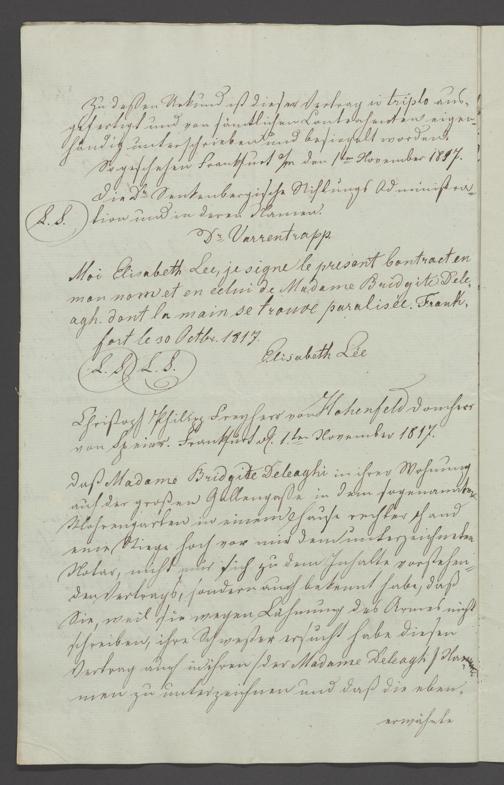 Zu dessen Urkund ist dieser Vertrag in triplo aus-
gefertigt und von sämtlichen Contrahenten eigen-
händig unterschrieben und besiegelt worden.
So geschehen Frankfurt a/m den 1ten November 1817.
Die Dr. Senkenbergische Stiftungs Administra-
(L. S.) tion und in deren Namen.
Dr. Varrentrapp
Moi Elisabeth Lee, je signe le present Contract en
mon nom et en celui de Madame Bridgite Dele-
agh. dont la main se trouve paralisée. Frank-
fort le 30 Octbr. 1817.
Elisabeth Lée
(L. S.) L. S.
Christoph Philipp Freyherr von Hohenfeld Domherr
von Speier. Frankfurt d. 1ten November 1817.
Daß Madame Bridgite Deleaghi in ihrer Wohnung
auf der großen Gallengasse in dem sogenannten
Mohrengarten in einem Hause rechter Hand
eine Stiege hoch vor mir dem unterzeichneten
Notar, nicht nur sich zu dem Inhalte vorstehen-
den Vertrags, sondern auch bekennt habe, daß
Sie, weil sie wegen Lähmung des Armes nicht
schreiben, ihre Schwester ersucht habe diesen
Vertrag auch in ihren /der Madame Deleagh/ Na-
men zu unterzeichnen und daß die eben-
erwähnte